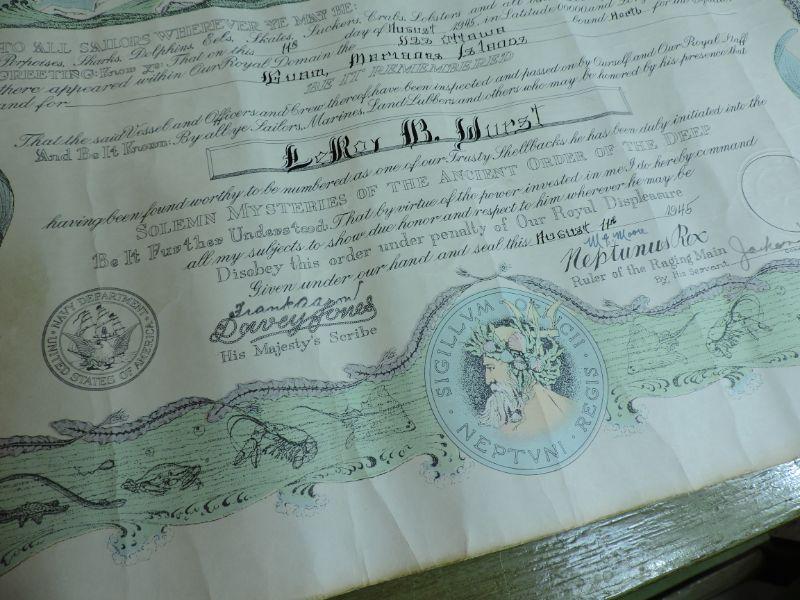 TO ALL SAILORS WHEREVER YE MAY BE:
Porpoises, Sharks, Dolphins, Eels, Skates, Suckers, Crabs, Lobsters and all
GREETING: Know Ye: That on this 11th day of August 1945, in Latitude 00000 and
there appeared within Our Royal Domain the USS Ottawa bound North for the
and for Guam, Marianas Islands
BE IT REMEMBERED
That the said Vessel and Officers and Crew thereof have been inspected and passed on by Ourself and Our Royal Staff
And Be It Known: By all ye Sailors, Marines, Land Lubbers and others who may be honored by his presence that
LeRoy B. Wurst
having been found worthy to be numbered as one of our Trusty Shellbacks he has been duly initiated into the
SOLEMN MYSTERIES OF THE ANCIENT ORDER OF THE DEEP
Be It Further Understood: That by virtue of the power invested in me I do hereby command
all my subjects to show due honor and respect to him wherever he may be
Disobey this order under penalty of Our Royal Displeasure
Given under our hand and seal this August 11th 1945
Davey Jones
His Majesty's Scribe
Neptunus Rex
Ruler of the Raging Main
By, His Servant
NAVY DEPARTMENT
UNITED STATES OF AMERICA
SIGILLVM
REGIS
NEPTVNI